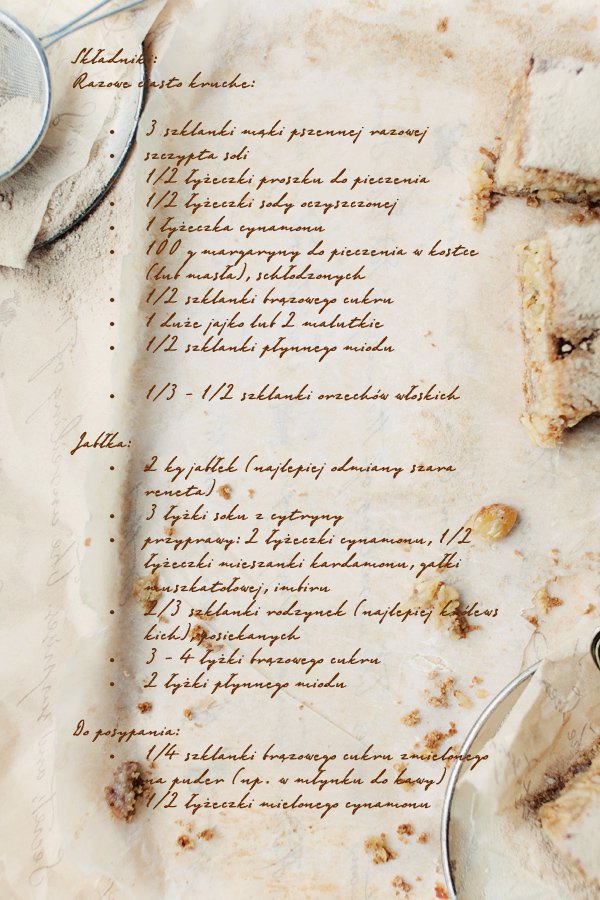 Składniki:
Razowe ciasto kruche:
• 3 szklanki mąki pszennej razowej
• szczypta soli
• 1/2 łyżeczki proszku do pieczenia
• 1/2 łyżeczki sody oczyszczonej
• 1 łyżeczka cynamonu
• 100 g margaryny do pieczenia w kostce
(lub masła), schłodzonych
• 1/2 szklanki brązowego cukru
• 1 duże jajko lub 2 malutkie
• 1/2 szklanki płynnego miodu
• 1/3 - 1/2 szklanki orzechów włoskich
Jabłka:
• 2 kg jabłek (najlepiej odmiany szara
reneta)
• 3 łyżki soku z cytryny
• przyprawy: 2 łyżeczki cynamonu, 1/2
łyżeczki mieszanki kardamonu, gałki
muszkatołowej, imbiru
• 2/3 szklanki rodzynek (najlepiej królews
kich), posiekanych
• 3 - 4 łyżki brązowego cukru
• 2 łyżki płynnego miodu
Do posypania:
• 1/4 szklanki brązowego cukru zmielonego
na puder (np. w młynku do kawy)
• 1/2 łyżeczki mielonego cynamonu